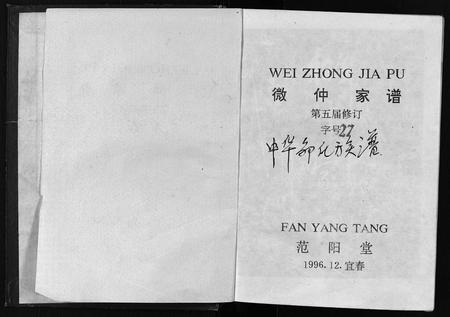 WEI ZHONG JIA PU
微仲家谱
第五届修订
字号27
中华邹氏族谱
FAN YANG TANG
范阳堂
1996.12.宜春